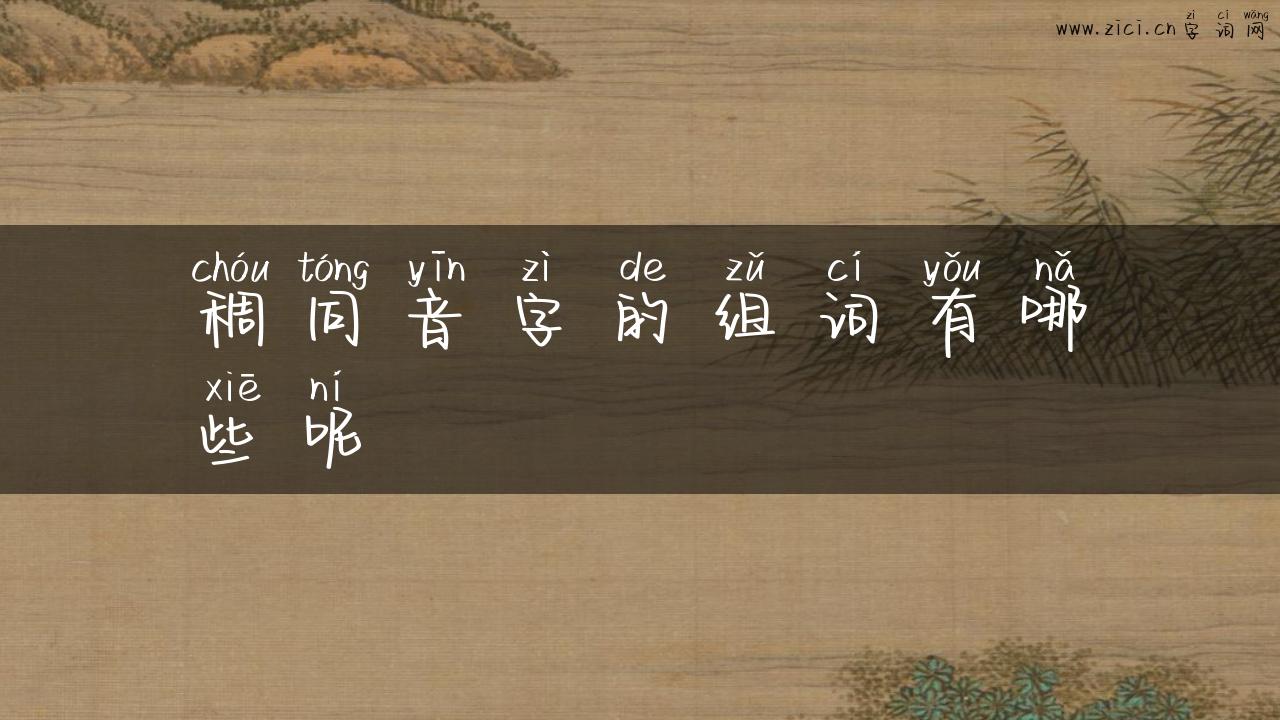 zì cí wǎng
www.zici.cn 字词网
chóu tóng yīn zì de zǔ cí yǒu nǎ
稠同音字的组词有哪
xiē ní
些呢